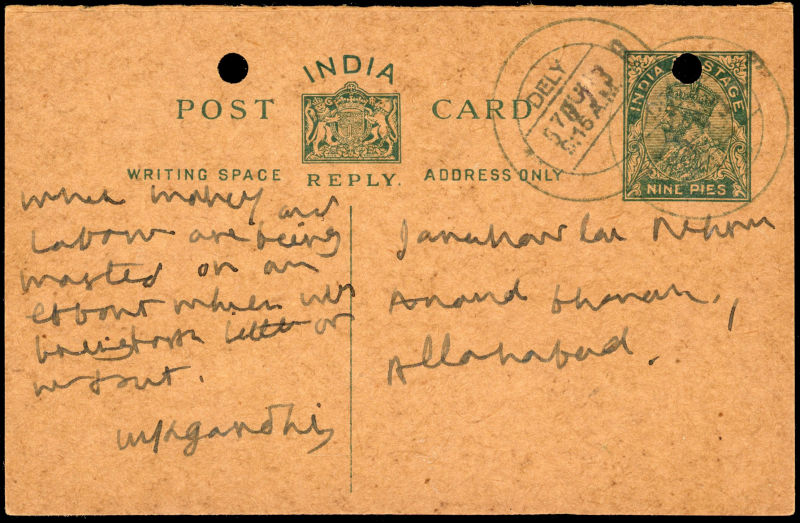 INDIA
POST CARD
WRITING SPACE REPLY. ADDRESS ONLY
INDIA POSTAGE
NINE PIES
DELY
When money and
labour are being
wasted on an
effort which will
bring forth little or
no fruit.
MKGandhi
Jawaharlal Nehru
Anand Bhawan,
Allahabad.